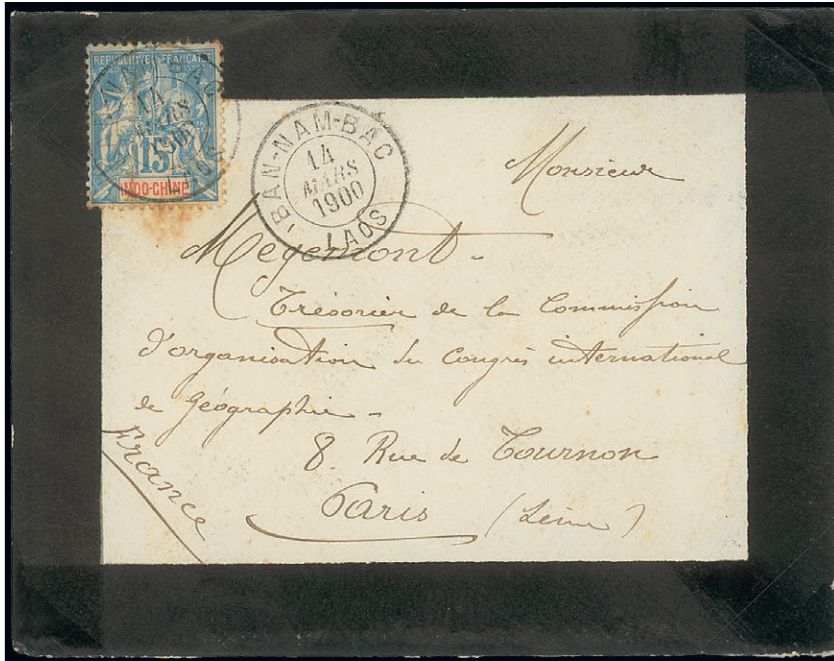 REPUBLIQUE FRANCAISE
15
INDO-CHINE
BAN-NAM-BAC
14
MARS
1900
LAOS
Monsieur
Megemont -
Trésorier de la Commission
d'organisation du Congrès international
de Géographie -
8. Rue de Tournon
Paris (Seine)
France